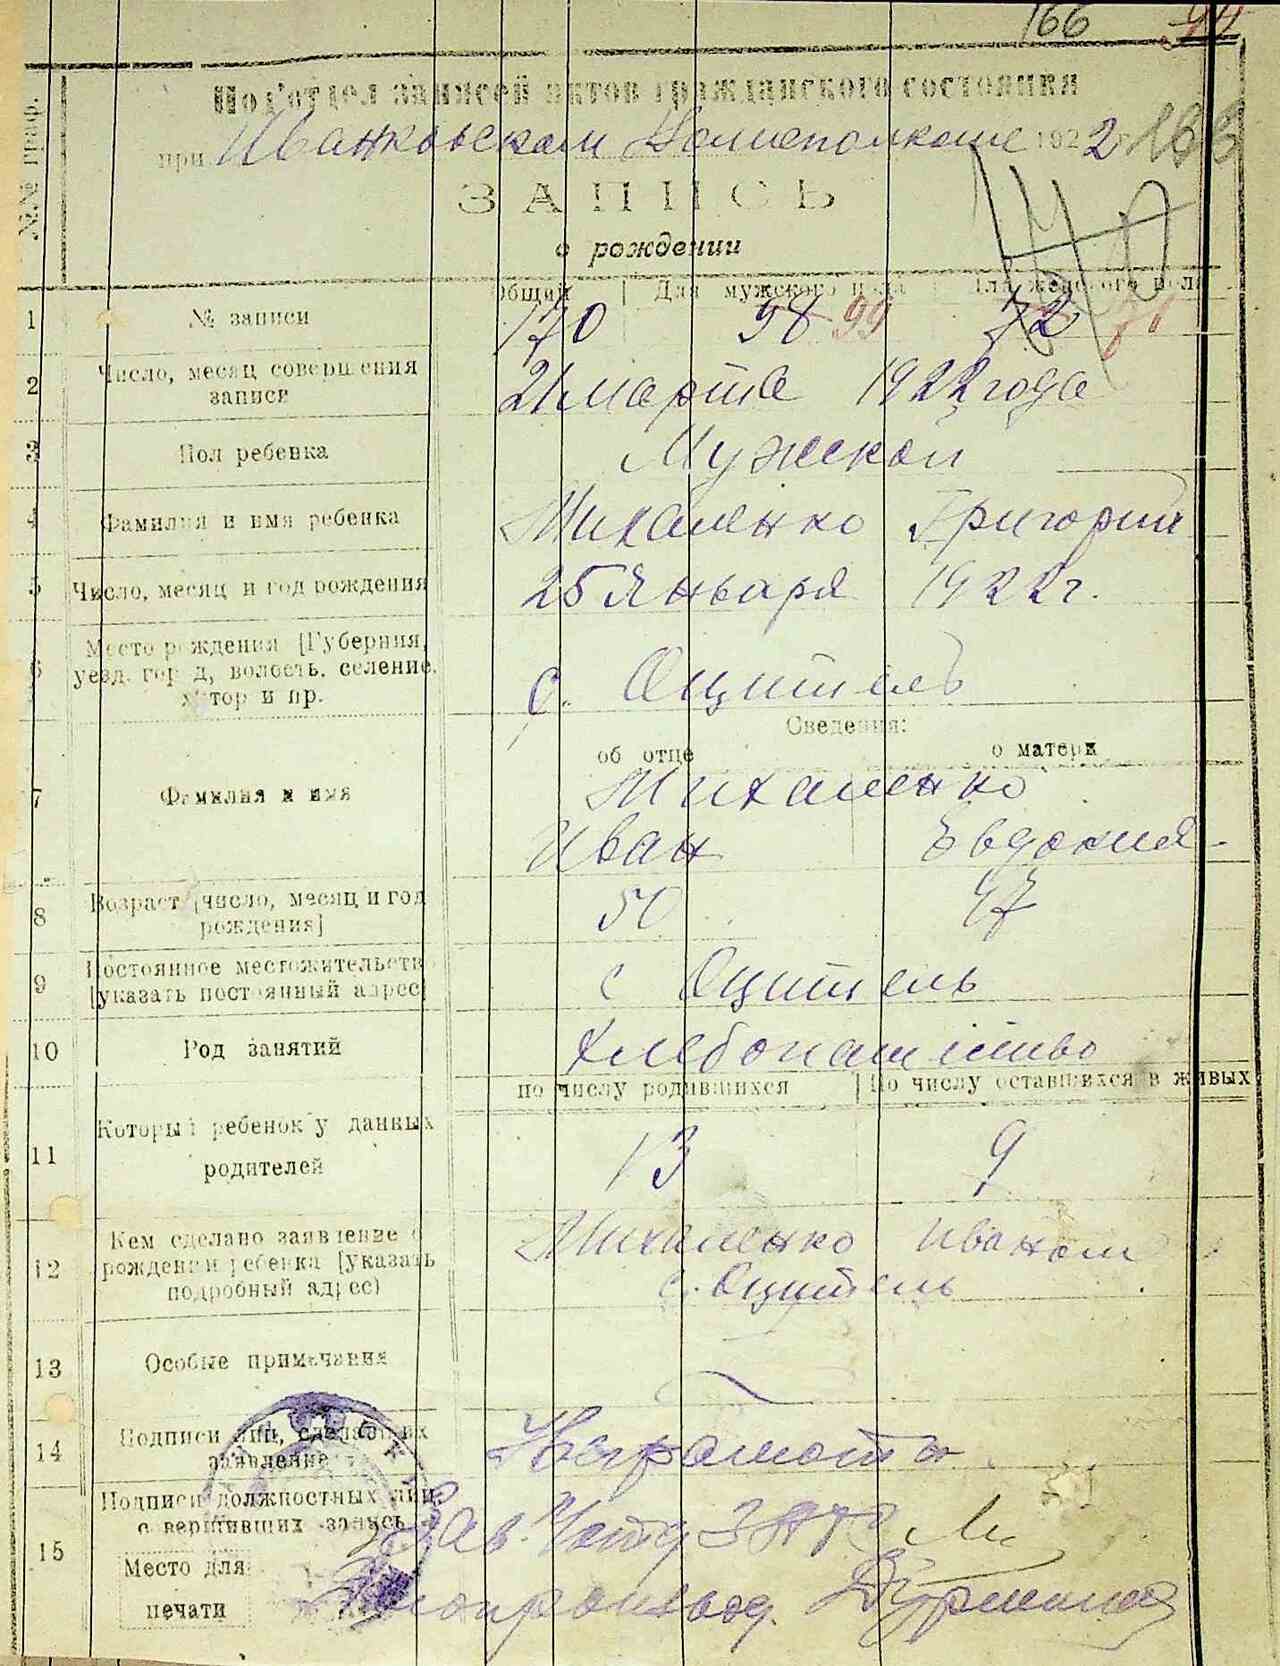 166
Под'отдел записей актов гражданского состояния
при Иванковском Волисполкоме 1922 г
ЗАПИСЬ
о рождении
№№ граф.
Общий | Для мужского пола | Для женского пола
1 № записи 170 98 99 72 71
2 Число, месяц совершения записи 21 марта 1922 года
3 Пол ребенка Мужской
4 Фамилия и имя ребенка Михаленко Григорий
5 Число, месяц и год рождения 25 Января 1922 г.
6 Место рождения [Губерния, уезд, город, волость, селение, хутор и пр. с. Оцитель
Сведения:
об отце о матери
7 Фамилия и имя Михаленко
Иван Евдокия
8 Возраст [число, месяц и год рождения] 50 47
9 Постоянное местожительство [указать постоянный адрес] с Оцитель
10 Род занятий Хлебопашество
по числу родившихся | По числу оставшихся в живых
11 Который ребенок у данных родителей 13 9
12 Кем сделано заявление о рождении ребенка [указать подробный адрес) Михаленко Иваном
с. Оцитель
13 Особые примечания
14 Подписи лиц, сделавших заявление Неграмота
15 Подписи должностных лиц, совершивших запись Зав. ЗАГС
Место для печати Делопроизвод.